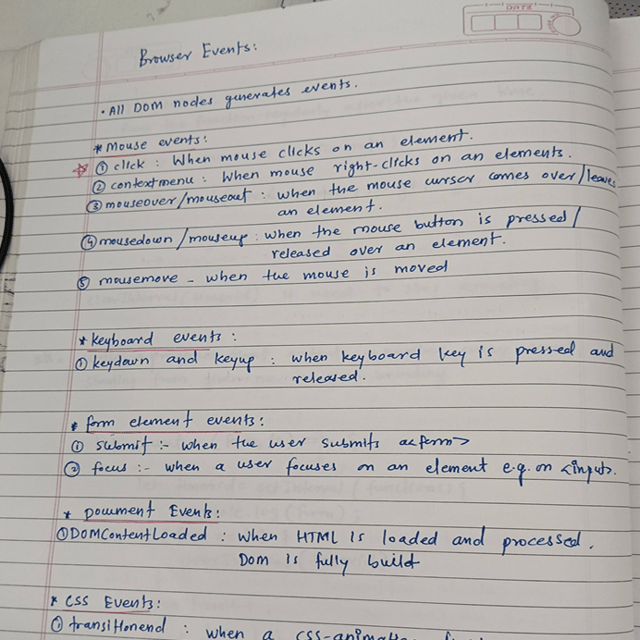 DATE
Browser Events:
• All DOM nodes generates events.
* Mouse events:
① click : When mouse clicks on an element.
② contextmenu : When mouse right-clicks on an elements.
③ mouseover/mouseout : when the mouse cursor comes over/leaves
an element.
④ mousedown/mouseup : when the mouse button is pressed/
released over an element.
⑤ mousemove - when the mouse is moved
* keyboard events :
① keydown and keyup : when keyboard key is pressed and
released.
* form element events :
① submit :- when the user submits a <form>
② focus :- when a user focuses on an element e.g. on <input>.
* Document Events :
① DOMContentLoaded : when HTML is loaded and processed.
Dom is fully build
* CSS Events :
① transitionend : when a CSS-animation